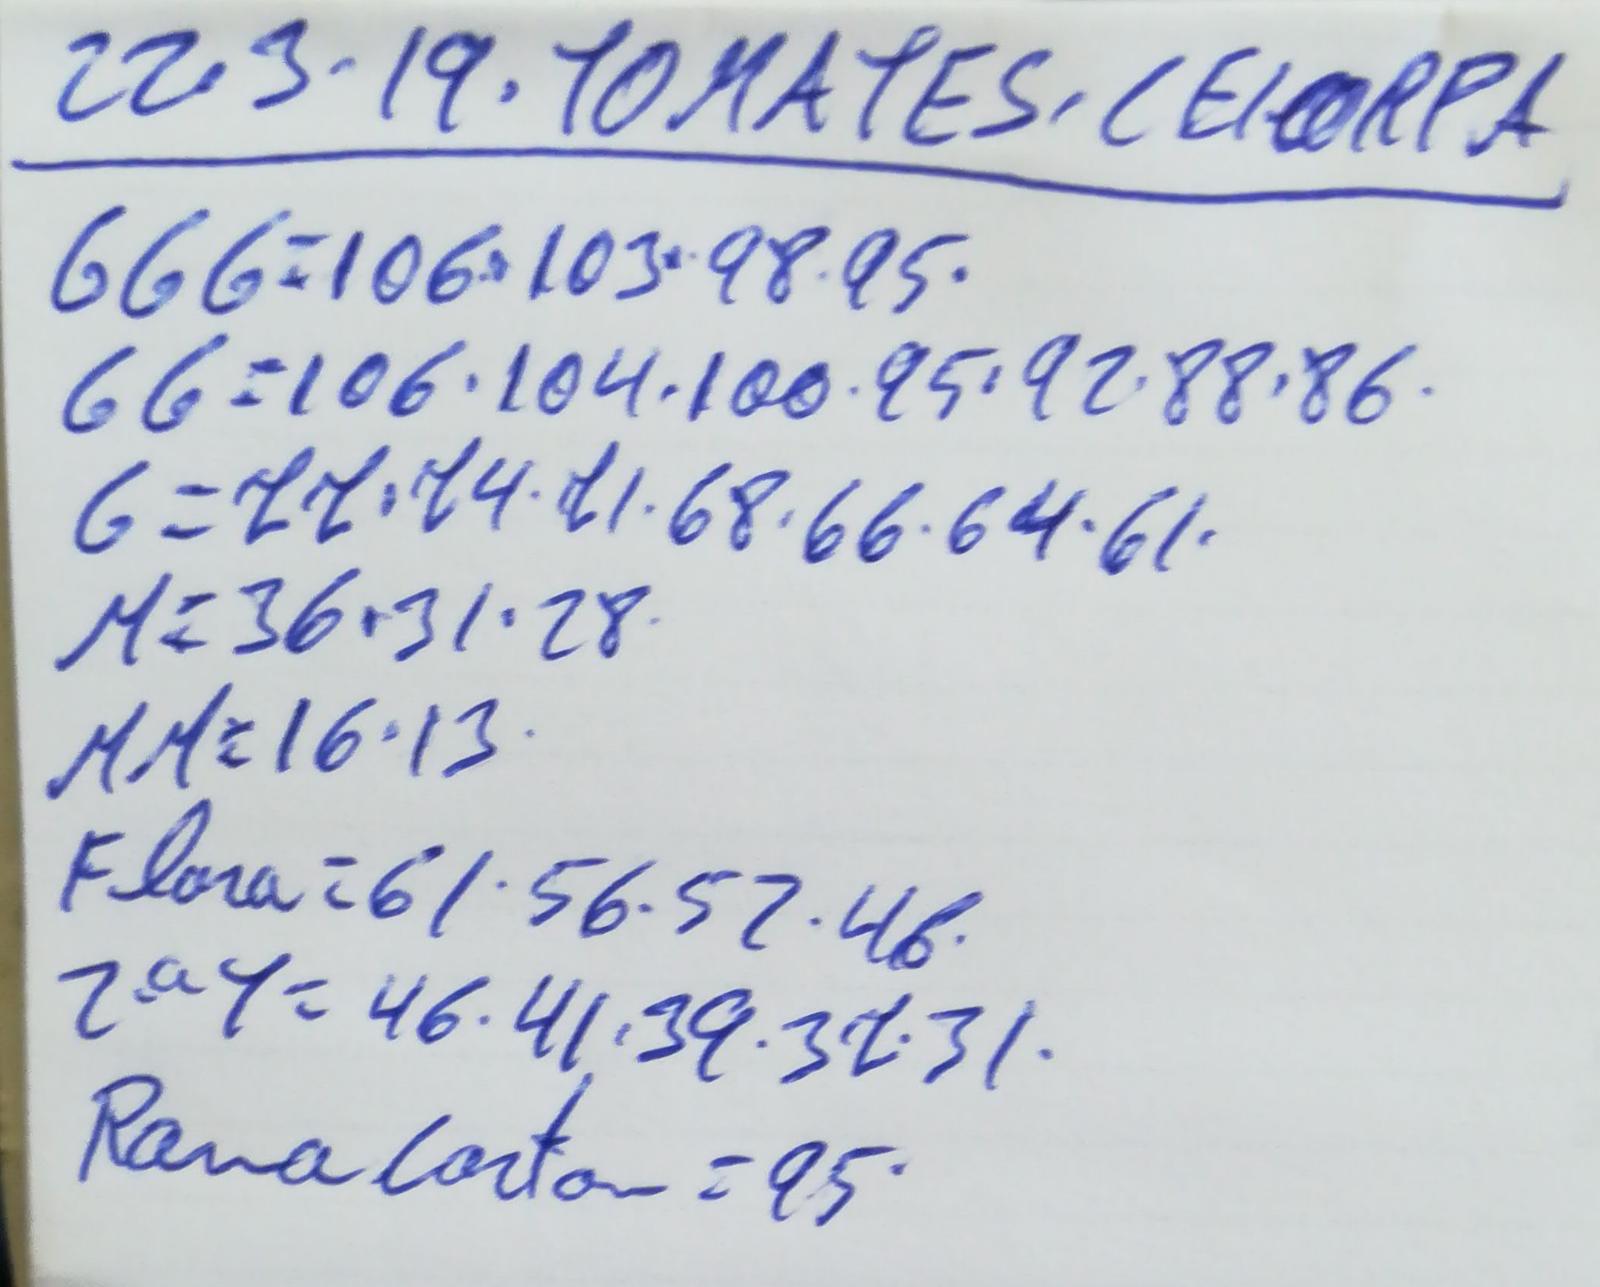 22.3.19.TOMATES.CEHORPA
GGG=106.103.98.95.
GG=106.104.100.95.92.88.86.
G=77.74.71.68.66.64.61.
M=36.31.28.
MM=16.13.
Flora=61.56.52.46.
2ªY=46.41.39.37.31.
Rama Carton=95.